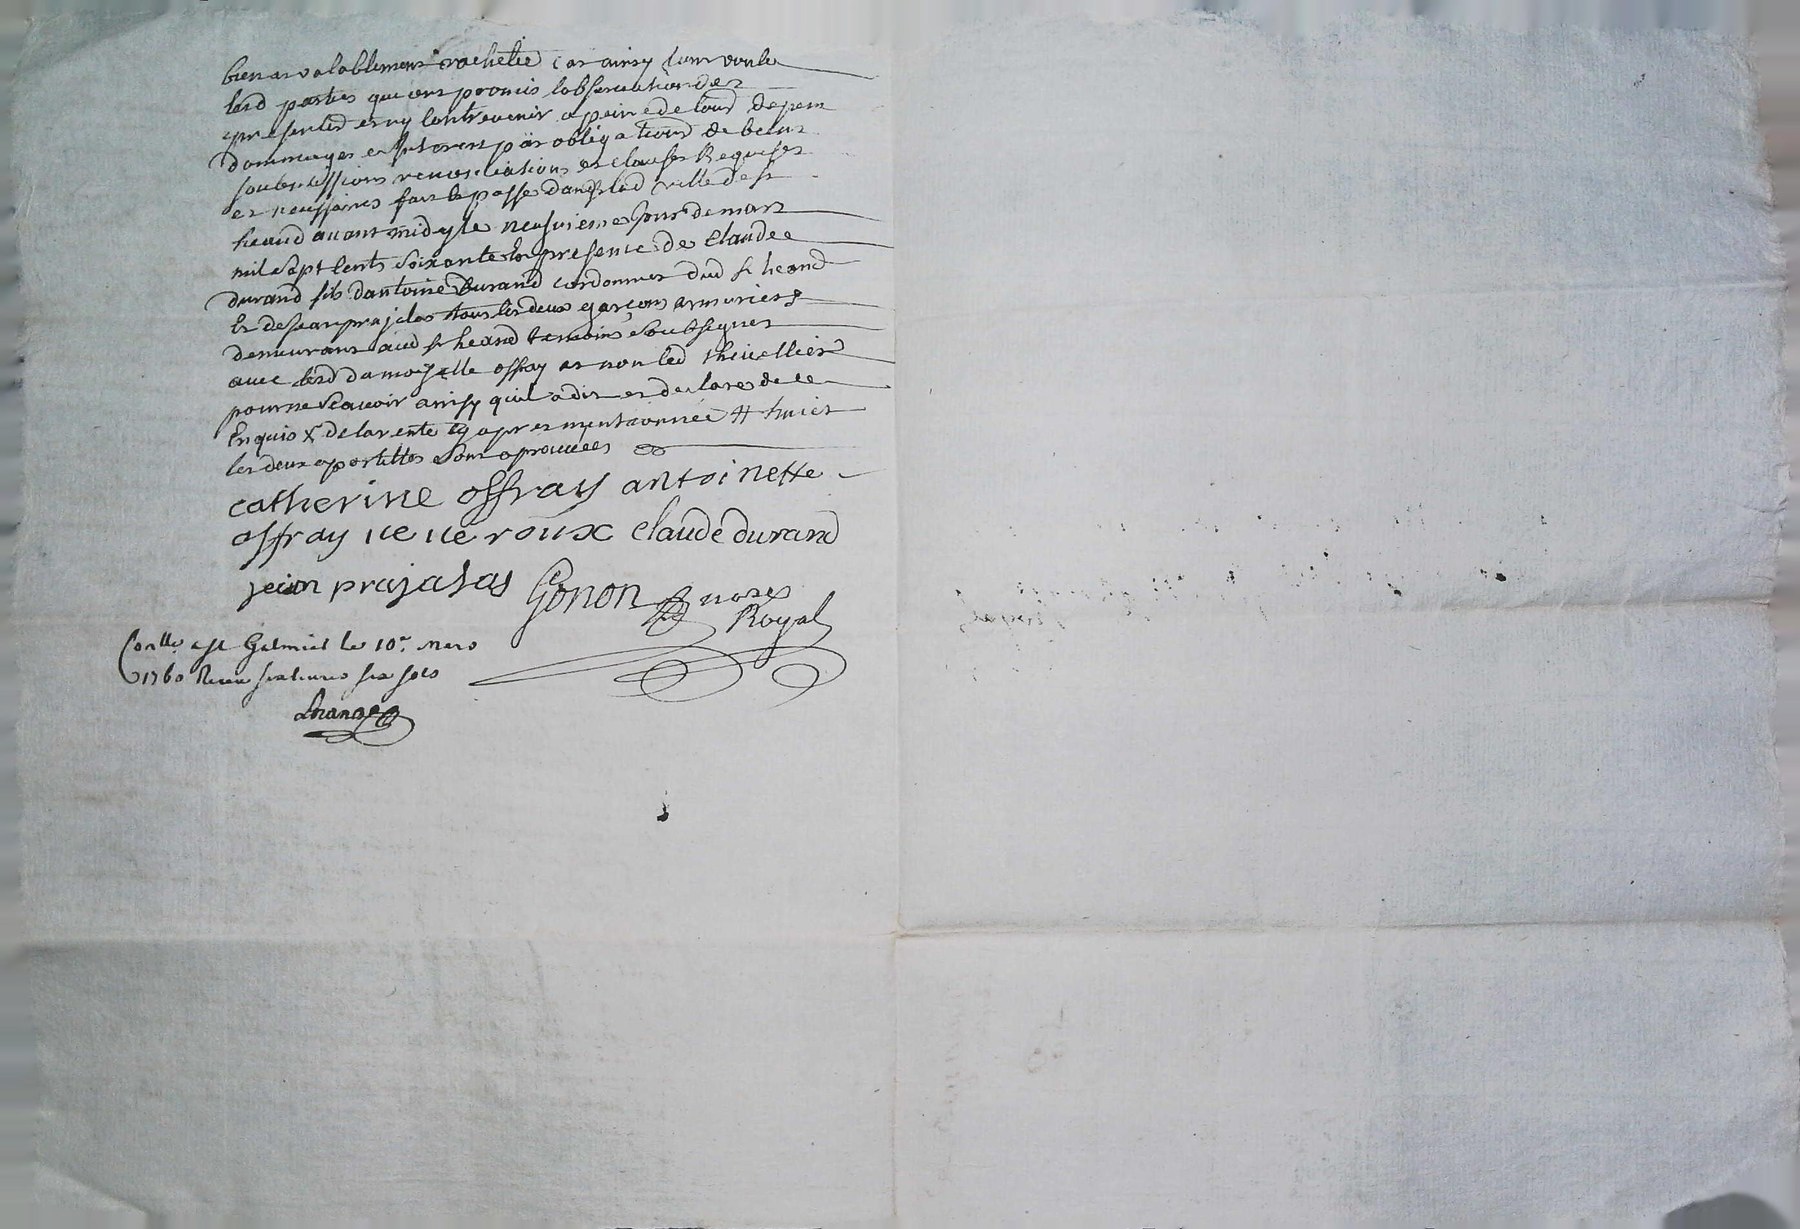 bien et valablement rachetée car ainsy l'ont voulu
lesd parties qui ont promis l'observation des
presentes et ny contrevenir a peine de tous depens
dommages et interets par obligations de biens
soubmissions renonciations et clauses Requises
et necessaires fait & passé dans lad ville de st
heand avant midy le neufvieme jour de mars
mil sept cents soixante En presence de Claude
durand fils d'antoine durand cordonnier dud st heand
Et de jean prajalas tous les deux garçons armuriers
demeurans aud st heand temoins soubsignes
avec lesd damoyselle offray et non led
pour ne scavoir ainsy qu'il a dit et declaré de ce
Enquis X de la rente cy apres mentionnée #
les deux apostilles sont aprouvées
catherine offray antoinette
offray roux Claude durand
jean prajalas Gonon nore
Royal
Conlle a St Galmier le 10e Mars
1760 Receu six livres six sols